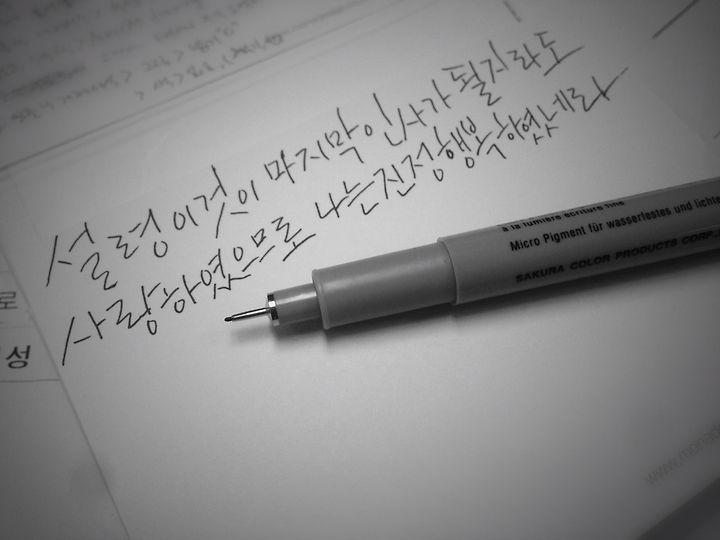 설령 이것이 마지막 인사가 될지라도
사랑하였으므로 나는 진정 행복하였네라
à la lumière écriture fine
Micro Pigment für wasserfestes und lichte
SAKURA COLOR PRODUCTS CORP.
로
성